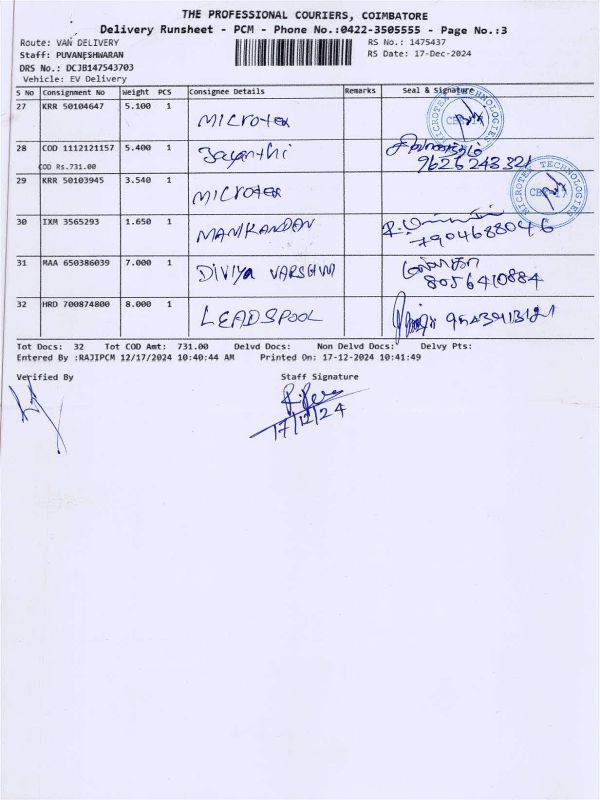 THE PROFESSIONAL COURIERS, COIMBATORE
Delivery Runsheet - PCM - Phone No.:0422-3505555 - Page No.:3
Route: VAN DELIVERY RS No.: 1475437
Staff: PUVANESHWARAN RS Date: 17-Dec-2024
DRS No.: DCJB147543703
Vehicle: EV Delivery
S No Consignment No Weight PCS Consignee Details Remarks Seal & Signature
27 KRR 50104647 5.100 1 MICROTEX
28 COD 1112121157 5.400 1 Jayanthi
COD Rs.731.00 9626243321
29 KRR 50103945 3.540 1 MICROTEX
MICROTEX TECHNOLOGIES
30 IXM 3565293 1.650 1 MANIKANDAN
7904688046
31 MAA 650386039 7.000 1 DIVIYA VARSHINI
8056410884
32 HRD 700874800 8.000 1 LEADSPOOL
Tot Docs: 32 Tot COD Amt: 731.00 Delvd Docs: Non Delvd Docs: Delvy Pts:
Entered By :RAJIPCM 12/17/2024 10:40:44 AM Printed On: 17-12-2024 10:41:49
Verified By Staff Signature
17/12/24